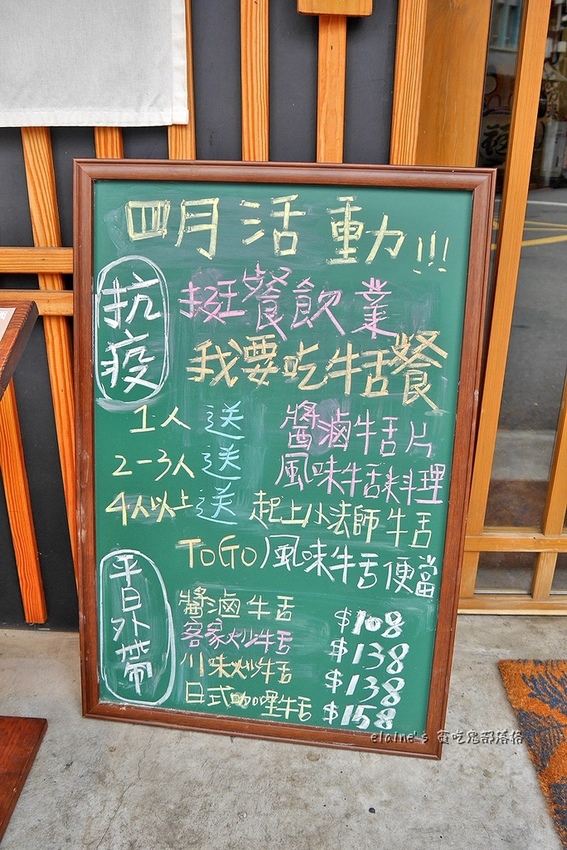 四月活動!!!
抗疫
挺餐飲業
我要吃牛舌餐
1人 送 醬滷牛舌片
2-3人 送 風味牛舌料理
4人以上 送 起士小法師牛舌
ToGo)風味牛舌便當
平日外帶
醬滷牛舌 $108
客家炒牛舌 $138
川味炒牛舌 $138
日式咖哩牛舌 $158
elaine's